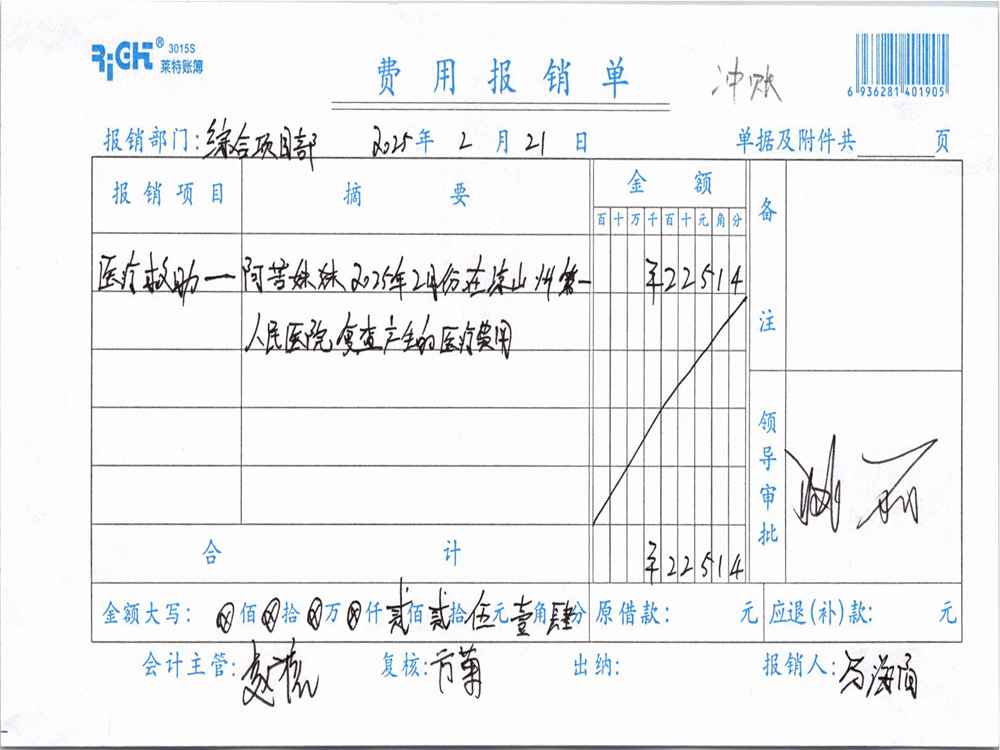 RiGHT® 3015S
莱特账簿
费用报销单
冲账
6 936281 401905
报销部门:综合项目部 2025年 2 月 21 日 单据及附件共 页
报销项目 摘要 金额 备注
百 十 万 千 百 十 元 角 分
医疗救助— 阿苦妹妹2025年2月份在凉山州第一 ¥22514
人民医院复查产生的医疗费用
领导审批
合计 ¥22514
金额大写: ⊗佰⊗拾⊗万⊗仟贰佰贰拾伍元壹角肆分 原借款: 元 应退(补)款: 元
会计主管: 复核:方菊 出纳: 报销人: